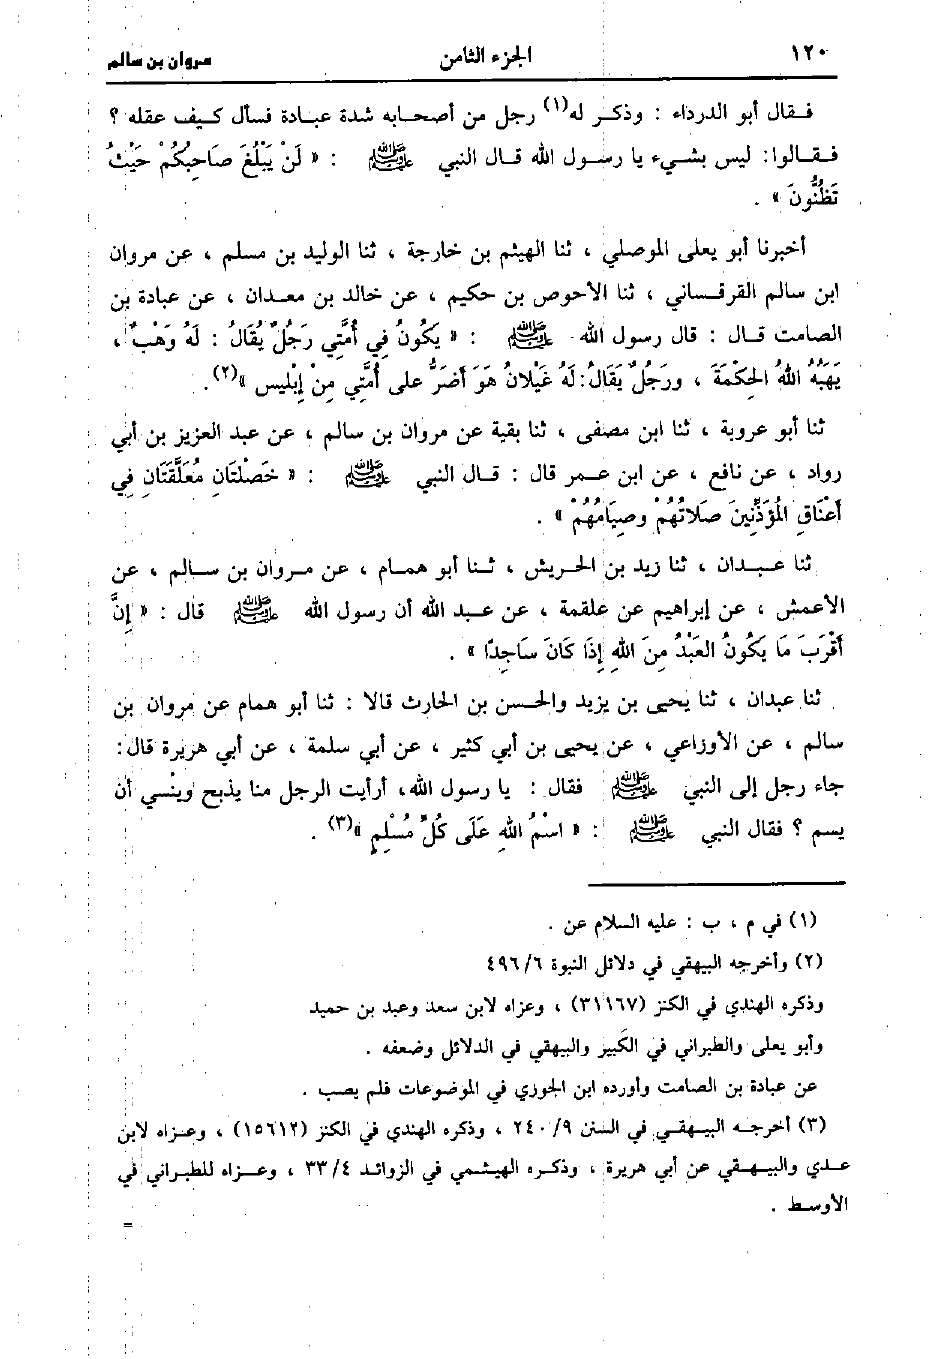 ١٢٠ الجزء الثامن مروان بن سالم
فـقال أبو الدرداء : وذكـر له(١) رجل من أصحـابه شدة عبـادة فسأل كـيف عقله ؟
فـقـالوا: ليس بشيء يا رسـول الله قـال النبي ﷺ : « لَنْ يَبْلُغَ صَاحِبُكُمْ حَيْثُ
تَظُنُّونَ » .
أخبرنا أبو يعلى الموصلي ، ثنا الهيثم بن خارجة ، ثنا الوليد بن مسلم ، عن مروان
ابن سالم القرقـساني ، ثنا الأحوص بن حكيم ، عن خالد بن معـدان ، عن عبادة بن
الصامت قـال : قال رسول الله ﷺ : « يَكُونُ فِي أُمَّتِي رَجُلٌ يُقَالُ : لَهُ وَهْبٌ ،
يَهَبُهُ اللهُ الحِكْمَةَ ، ورَجُلٌ يُقَالُ: لَهُ غَيْلانُ هَوَ أَضَرُّ على أُمَّتِي مِنْ إِبْلِيس »(٢).
ثنا أبو عروبة ، ثنا ابن مصفى ، ثنا بقية عن مروان بن سالم ، عن عبد العزيز بن أبي
رواد ، عن نافع ، عن ابن عـمر قال : قـال النبي ﷺ : « خَصْلَتَانِ مُعَلَّقَتَانِ فِي
أَعْنَاقِ المُؤَذِّنِينَ صَلَاتُهُمْ وصِيَامُهُمْ » .
ثنا عبـدان ، ثنا زيد بن الحريش ، ثـنا أبو همام ، عن مـروان بن سـالم ، عن
الأعمش ، عن إبراهيم عن علقمة ، عن عـبد الله أن رسول الله ﷺ قال : « إِنَّ
أَقْرَبَ مَا يَكُونُ العَبْدُ مِنَ اللهِ إِذَا كَانَ سَاجِدًا » .
ثنا عبدان ، ثنا يحيى بن يزيد والحـسن بن الحارث قالا : ثنا أبو همام عن مروان بن
سالم ، عن الأوزاعي ، عن يحيى بن أبي كثير ، عن أبي سلمة ، عن أبي هريرة قال:
جاء رجل إلى النبي ﷺ فقال : يا رسول الله، أرأيت الرجل منا يذبح وينْسي أن
يسم ؟ فقال النبي ﷺ : « اسْمُ اللهِ عَلَى كُلِّ مُسْلِمٍ »(٣) .
(١) في م ، ب : عليه السلام عن .
(٢) وأخرجه البيهقي في دلائل النبوة ٤٩٦/٦
وذكره الهندي في الكنز (٣١١٦٧) ، وعزاه لابن سعد وعبد بن حميد
وأبو يعلى والطبراني في الكَبير والبيهقي في الدلائل وضعفه .
عن عبادة بن الصامت وأورده ابن الجوزي في الموضوعات فلم يصب .
(٣) أخرجـه البيهقـي في السنن ٢٤٠/٩ ، وذكره الهندي في الكنز (١٥٦١٢) ، وعـزاه لابن
عـدي والبيـهقي عن أبي هريرة ، وذكـره الهيشمي في الزوائد ٣٣/٤ ، وعـزاه للطبراني في
الأوسـط .
=